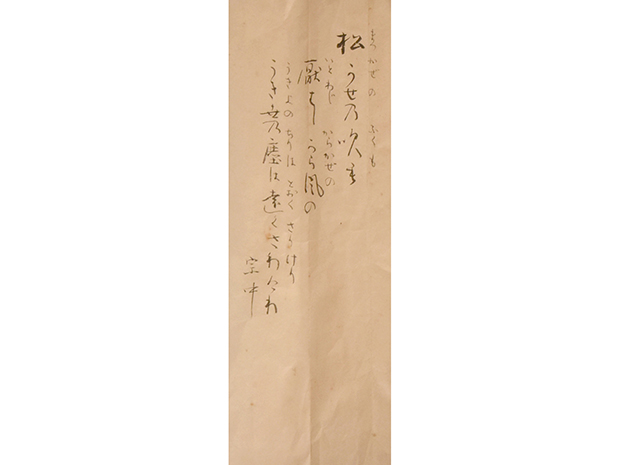 まつかぜの ふくも
松かせ乃吹も
いとわじ からかぜの
厭はし から風の
うきよの ちりは とおく さりけり
うき世乃塵は遠くさりけり
宗中